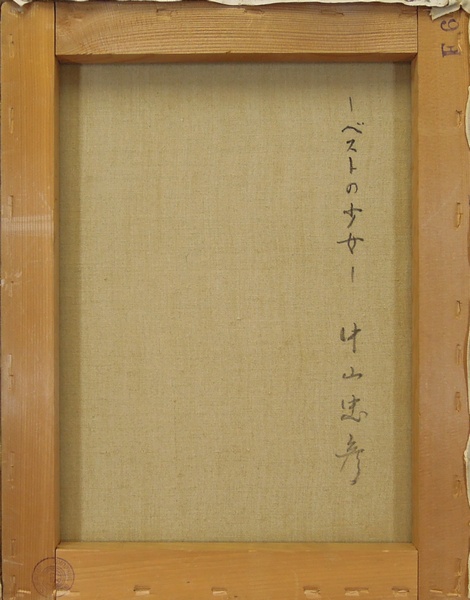 ーベストの少女ー 中山忠彦
F6